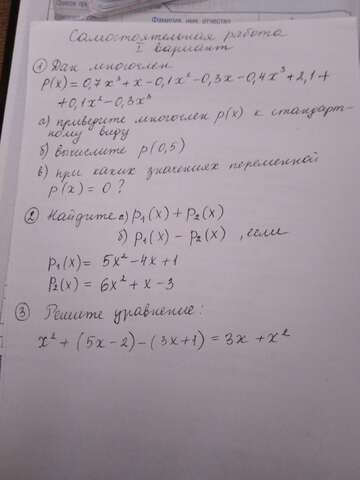 Фамилия, имя, отчество
Самостоятельная работа
I вариант
① Дан многочлен
P(x) = 0,7x³ + x - 0,1x² - 0,3x - 0,4x³ + 2,1 +
+ 0,1x² - 0,3x³
а) приведите многочлен p(x) к стандарт-
ному виду
б) вычислите p(0,5)
в) при каких значениях переменной
p(x) = 0 ?
② Найдите а) p₁(x) + p₂(x)
б) p₁(x) - p₂(x) , если
p₁(x) = 5x² - 4x + 1
p₂(x) = 6x² + x - 3
③ Решите уравнение:
x² + (5x - 2) - (3x + 1) = 3x + x²